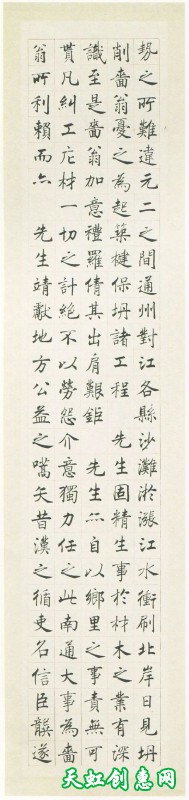 勢之所難違元二之間通州對江各縣沙灘淤漲江水衝刷北岸日見坍
削嗇翁憂之為起築楗保坍諸工程　先生固精生事於材木之業有深
識至是嗇翁加意禮羅倩其出肩艱鉅　先生亦自以鄉里之事責無可
貫凡糾工庀材一切之計絕不以勞怨介意獨力任之此南通大事為嗇
翁所利賴而亦　先生靖獻地方公益之嚆矢昔漢之循吏名信臣龔遂
天虹创惠网